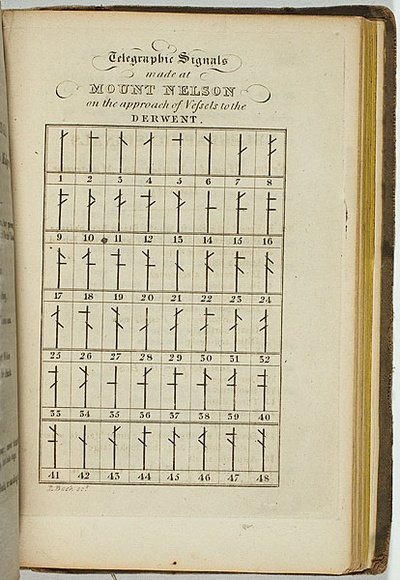 Telegraphic Signals
made at
MOUNT NELSON
on the approach of Vessels to the
DERWENT.
1 2 3 4 5 6 7 8
9 10 11 12 13 14 15 16
17 18 19 20 21 22 23 24
25 26 27 28 29 30 31 32
33 34 35 36 37 38 39 40
41 42 43 44 45 46 47 48